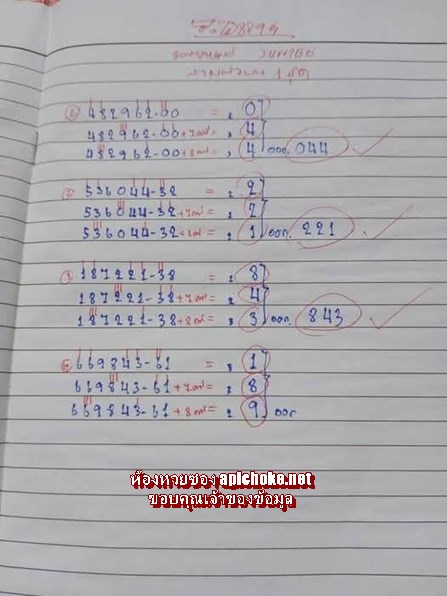 ① 482962-00 = , 0
482962-00+ = , 4
482962-00+ = , 4 ออก. 044
② 536044-32 = , 2
536044-32+ = , 2
536044-32+ = , 1 ออก. 221
③ 187221-38 = , 8
187221-38+ = , 4
187221-38+ = , 3 ออก. 843
669843-61 = , 1
669843-61+ = , 8
669843-61+ = , 9 ออก
ห้องหวยซอง apichoke.net
ขอบคุณเจ้าของข้อมูล